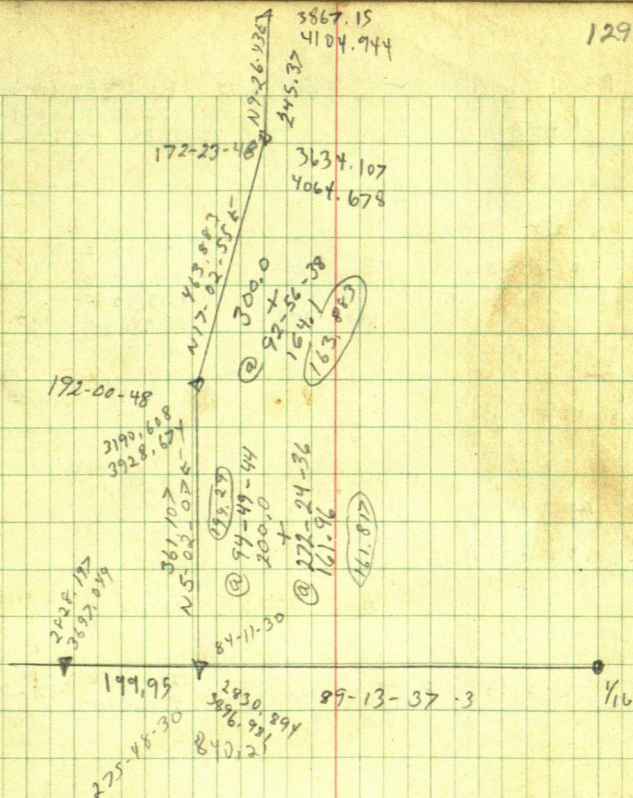 129
3867.15
4104.944
N9-26-43E
245.37
172-23-48
3634.107
4064.678
463.883
N17-02-55E
300.0
+
@ 92-56-38
164.1
163.883
192-00-48
3190.608
3928.674
361.107
N5-02-07E
199.29
@ 94-49-44
200.0
+
@ 272-24-36
161.96
161.817
2828.197
3697.049
84-11-30
199.95
2830.894
3896.981
840.21
89-13-37.3
1/16
275-48-30